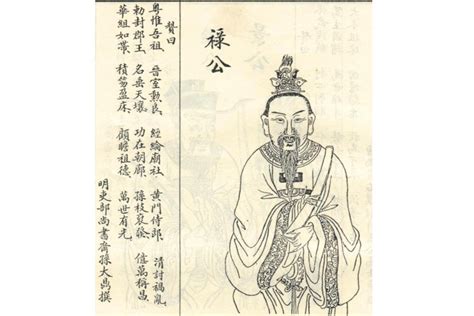 祿公
贊曰
粵惟吾祖、晉室勳良、經綸廟社、黃門侍郎、清討禍亂
勅封郡王、名垂天壤、功在朝廊、孫枝 值萬稱昌
華組如帶、積笏盈床、顧瞻祖德、萬世有光
明吏部尚書裔孫大鼎撰